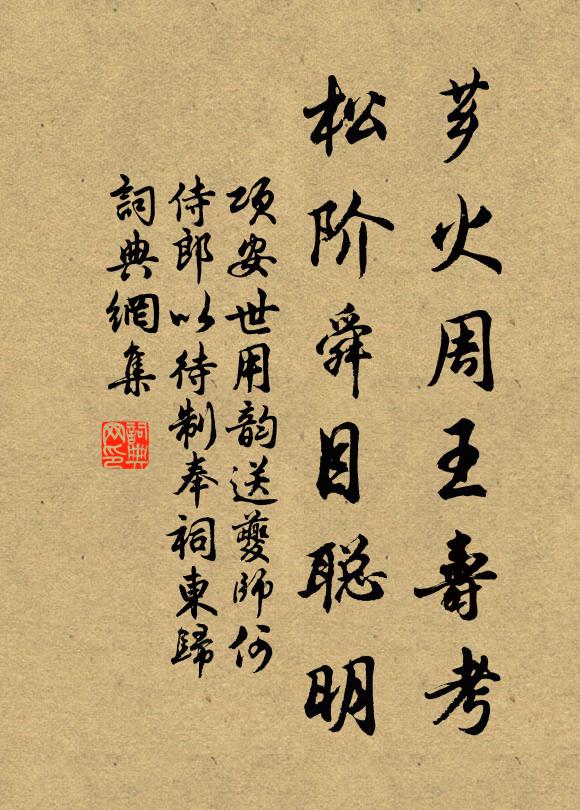 芗火周王壽考
松阶舜目聪明
项安世用韵送夔师何
侍郎以待制奉祠東歸
詞典網集
詞典网印